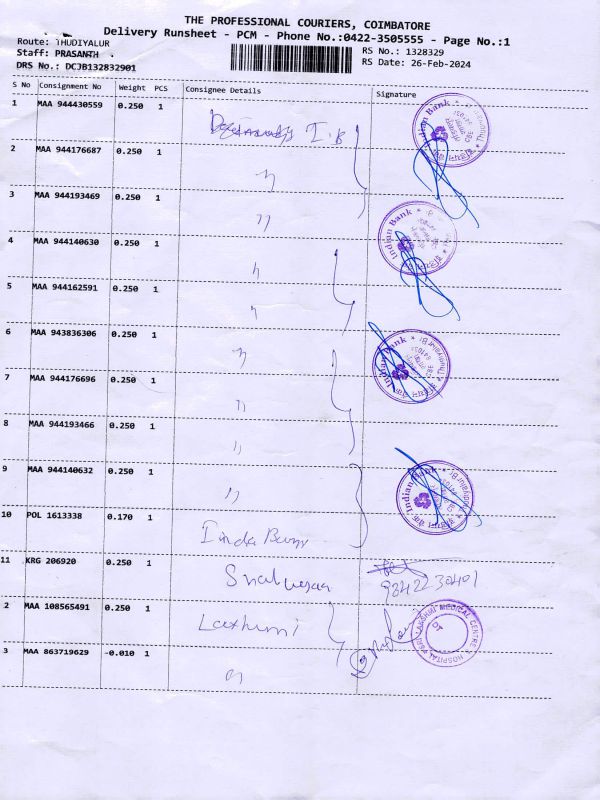 THE PROFESSIONAL COURIERS, COIMBATORE
Delivery Runsheet - PCM - Phone No.:0422-3505555 - Page No.:1
Route: THUDIYALUR
RS No.: 1328329
Staff: PRASANTH
RS Date: 26-Feb-2024
DRS No.: DCJB132832901
S No Consignment No Weight PCS Consignee Details Signature
1 MAA 944430559 0.250 1
Indian Bank
2 MAA 944176687 0.250 1 "
3 MAA 944193469 0.250 1 "
Indian Bank
4 MAA 944140630 0.250 1 "
5 MAA 944162591 0.250 1 "
6 MAA 943836306 0.250 1 "
Indian Bank
7 MAA 944176696 0.250 1 "
8 MAA 944193466 0.250 1 "
9 MAA 944140632 0.250 1 "
Indian Bank
10 POL 1613338 0.170 1
11 KRG 206920 0.250 1
9842230401
2 MAA 108565491 0.250 1 Laxhumi
LAKSHMI MEDICAL CENTRE HOSPITAL
3 MAA 863719629 -0.010 1 "